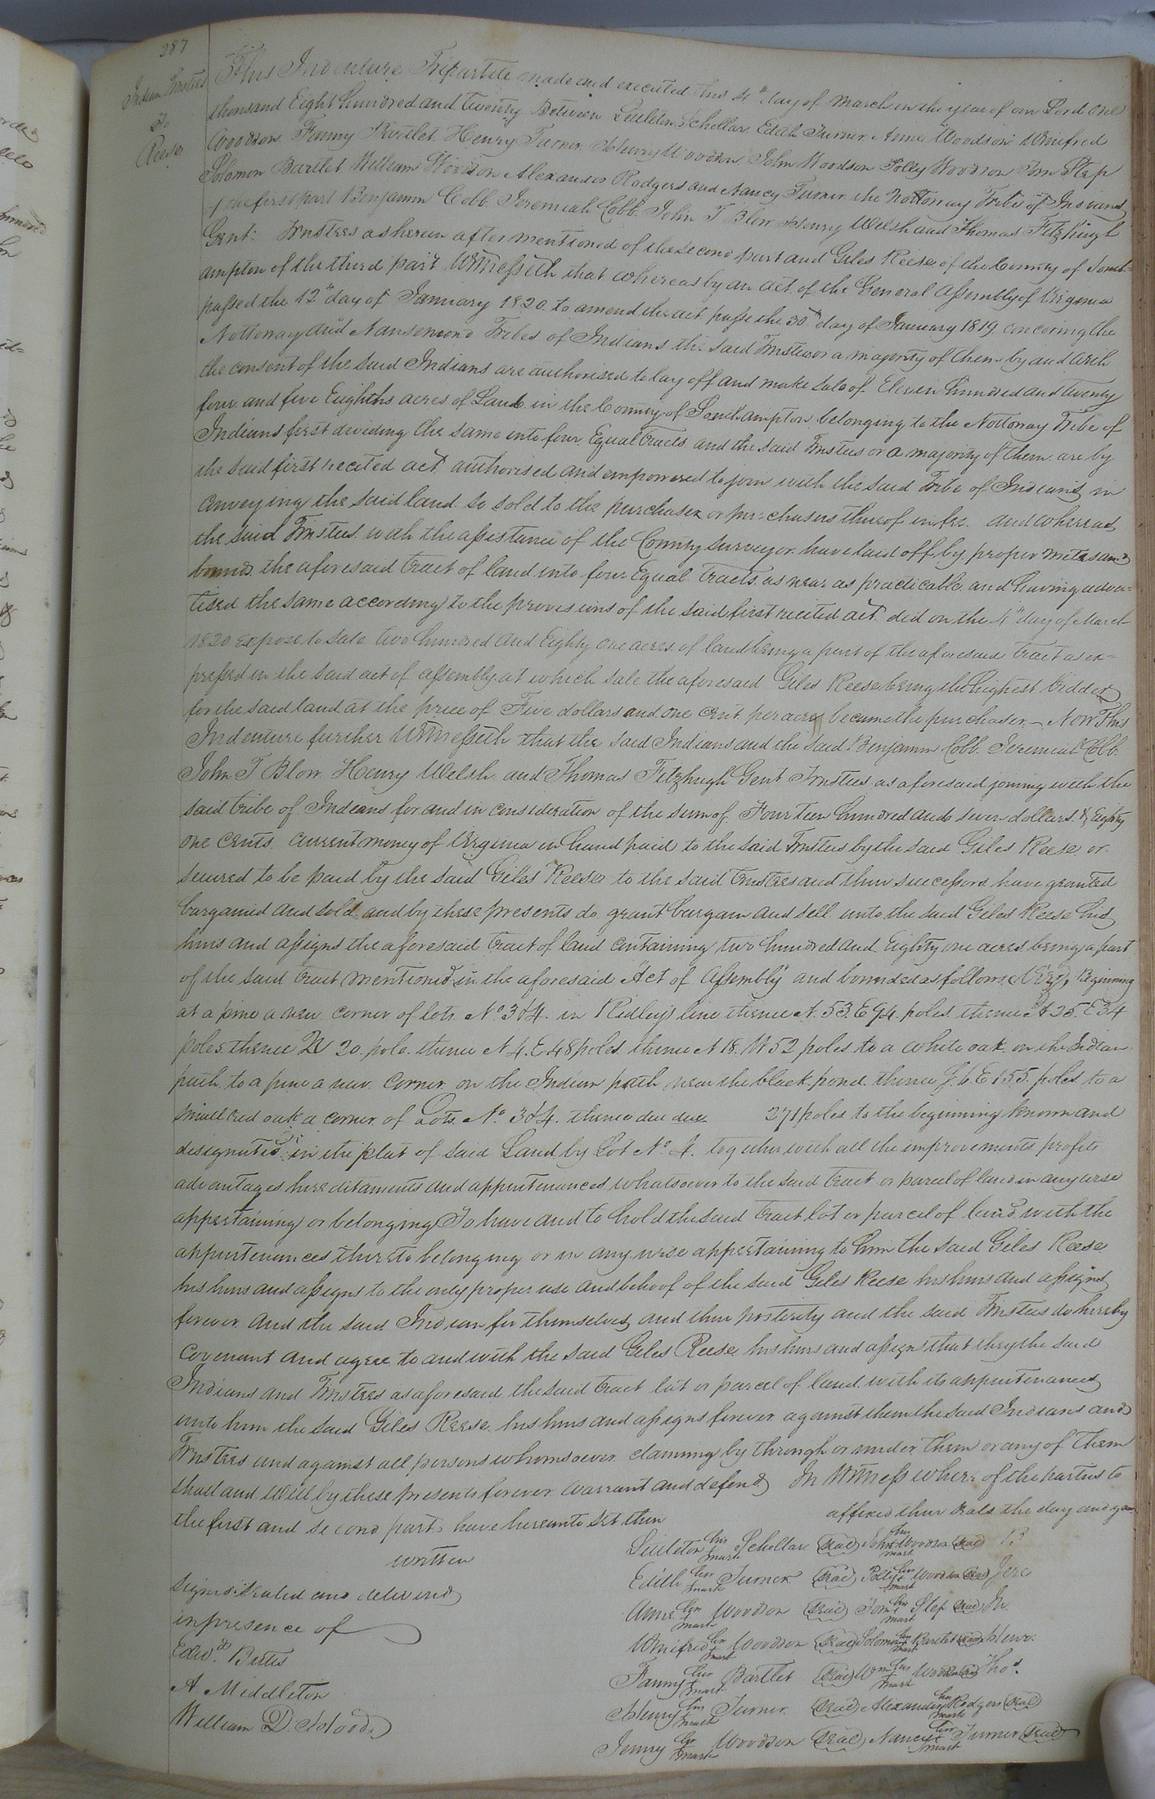 287
Indian Trustees
To
Reese
This Indenture Tripartite made and executed this 4th day of March in the year of our Lord one
thousand Eight hundred and twenty Between Littleton Schollar Edith Turner Anne Woodson Winifred
Woodson Fanny Bartlet Henry Turner Jenny Woodson John Woodson Polly Woodson Tom Step
Solomon Bartlet William Woodson Alexander Rodgers and Nancy Turner the Nottoway Tribe of Indians
of the first part Benjamin Cobb Jeremiah Cobb John T Blow Henry Welsh and Thomas Fitzhugh
Gent: Trustees as herein after mentioned of the second part and Giles Reese of the County of South-
ampton of the third part Witnesseth that whereas by an act of the General Assembly of Virginia
passed the 12th day of January 1820 to amend the act passe the 30th day of January 1819 concerning the
Nottoway and Nansemond Tribes of Indians the said Trustees or a majority of them by and with
the consent of the said Indians are authorised to lay off and make sale of Eleven hundred and twenty
four and five Eighths acres of Land in the County of Southampton belonging to the Nottoway Tribe of
Indians first dividing the same into four Equal Tracts and the said Trustees or a majority of them are by
the said first recited act authorised and empowered to join with the said Tribe of Indians in
conveying the said land so sold to the purchaser or purchasers thereof in fee and whereas
the said Trustees with the assistance of the County surveyor have laid off by proper metes and
bounds the aforesaid tract of land into four Equal Tracts as near as practicable and having adver-
tised the same according to the provisions of the said first recited act did on the 4th day of March
1820 expose to sale two hundred and Eighty one acres of land being a part of the aforesaid tract as ex-
pressed in the said act of assembly at which sale the aforesaid Giles Reese being the highest bidder
for the said land at the price of Five dollars and one cent per acre became the purchaser - Now This
Indenture further Witnesseth that the said Indians and the said Benjamin Cobb Jeremiah Cobb
John T Blow Henry Welsh and Thomas Fitzhugh Gent Trustees as aforesaid joining with the
said tribe of Indians for and in consideration of the sum of Fourteen hundred and seven dollars & Eighty
one cents current money of Virginia in hand paid to the said Trustees by the said Giles Reese or
secured to be paid by the said Giles Reese to the said trustees and their successors have granted
bargained and sold and by these presents do grant bargain and sell unto the said Giles Reese his
heirs and assigns the aforesaid tract of land containing two hundred and Eighty one acres being a part
of the said tract mentioned in the aforesaid "Act of Assembly" and bounded as follows Beginning
at a pine a new corner of lots No 3 & 4 in Ridley's line thence N. 53 E 94 poles thence 25 E 34
poles thence 20 pole thence N 4 E 48 poles thence N 18 W 52 poles to a white oak on the Indian
path to a pine a new corner on the Indian path near the black pond thence S 6 E 155 poles to a
small red oak a corner of Lots No 3 & 4 thence due due 271 poles to the beginning known and
designated in the plat of said Land by Lot No 4. together with all the improvements profits
advantages hereditaments and appurtenances whatsoever to the said tract or parcel of land in any wise
appertaining or belonging To have and to hold the said tract lot or parcel of land with the
appurtenances thereto belonging or in any wise appertaining to him the said Giles Reese
his heirs and assigns to the only proper use and behoof of the said Giles Reese his heirs and assigns
forever and the said Indian for themselves and their posterity and the said Trustees do hereby
covenant and agree to and with the said Giles Reese his heirs and assigns that they the said
Indians and Trustees as aforesaid the said tract lot or parcel of land with its appurtenances
unto him the said Giles Reese his heirs and assigns forever against them the said Indians and
Trustees and against all persons whomsoever claiming by through or under them or any of them
shall and will by these presents forever warrant and defend In Witness where of the parties to
the first and second parts have hereunto set their affixed their seals the day and year
written
Signed sealed and delivered
in presence of
Edwd. Butts
A Middleton
William D. Hood
Littleton his mark Schollar Seal John his mark Woodson Seal B
Edith her mark Turner Seal Polly her mark Woodson Seal Jere
Anne her mark Woodson Seal Tom his mark Step Seal Jn
Winifred her mark Woodson Seal Solomon his mark Bartlet Seal Henr
Fanny her mark Bartlet Seal Wm his mark Woodson Seal Thos.
Henry his mark Turner Seal Alexander his mark Rodgers Seal
Jenny her mark Woodson Seal Nancy her mark Turner Seal